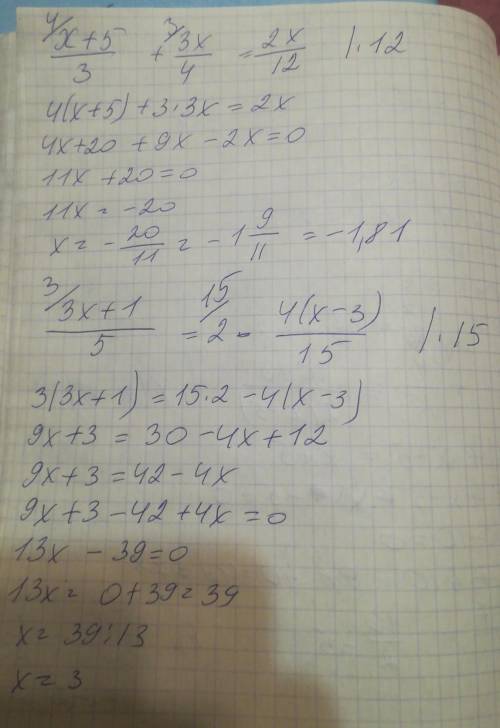 4/ (x+5)/3 + 3/ 3x/4 = 2x/12 /·12
4(x+5)+3·3x=2x
4x+20+9x-2x=0
11x+20=0
11x=-20
x=-20/11=-1 9/11=-1,81
3/ (3x+1)/5 = 15/ 2 - 4(x-3)/15 /·15
3(3x+1)=15·2-4(x-3)
9x+3=30-4x+12
9x+3=42-4x
9x+3-42+4x=0
13x-39=0
13x=0+39=39
x=39:13
x=3